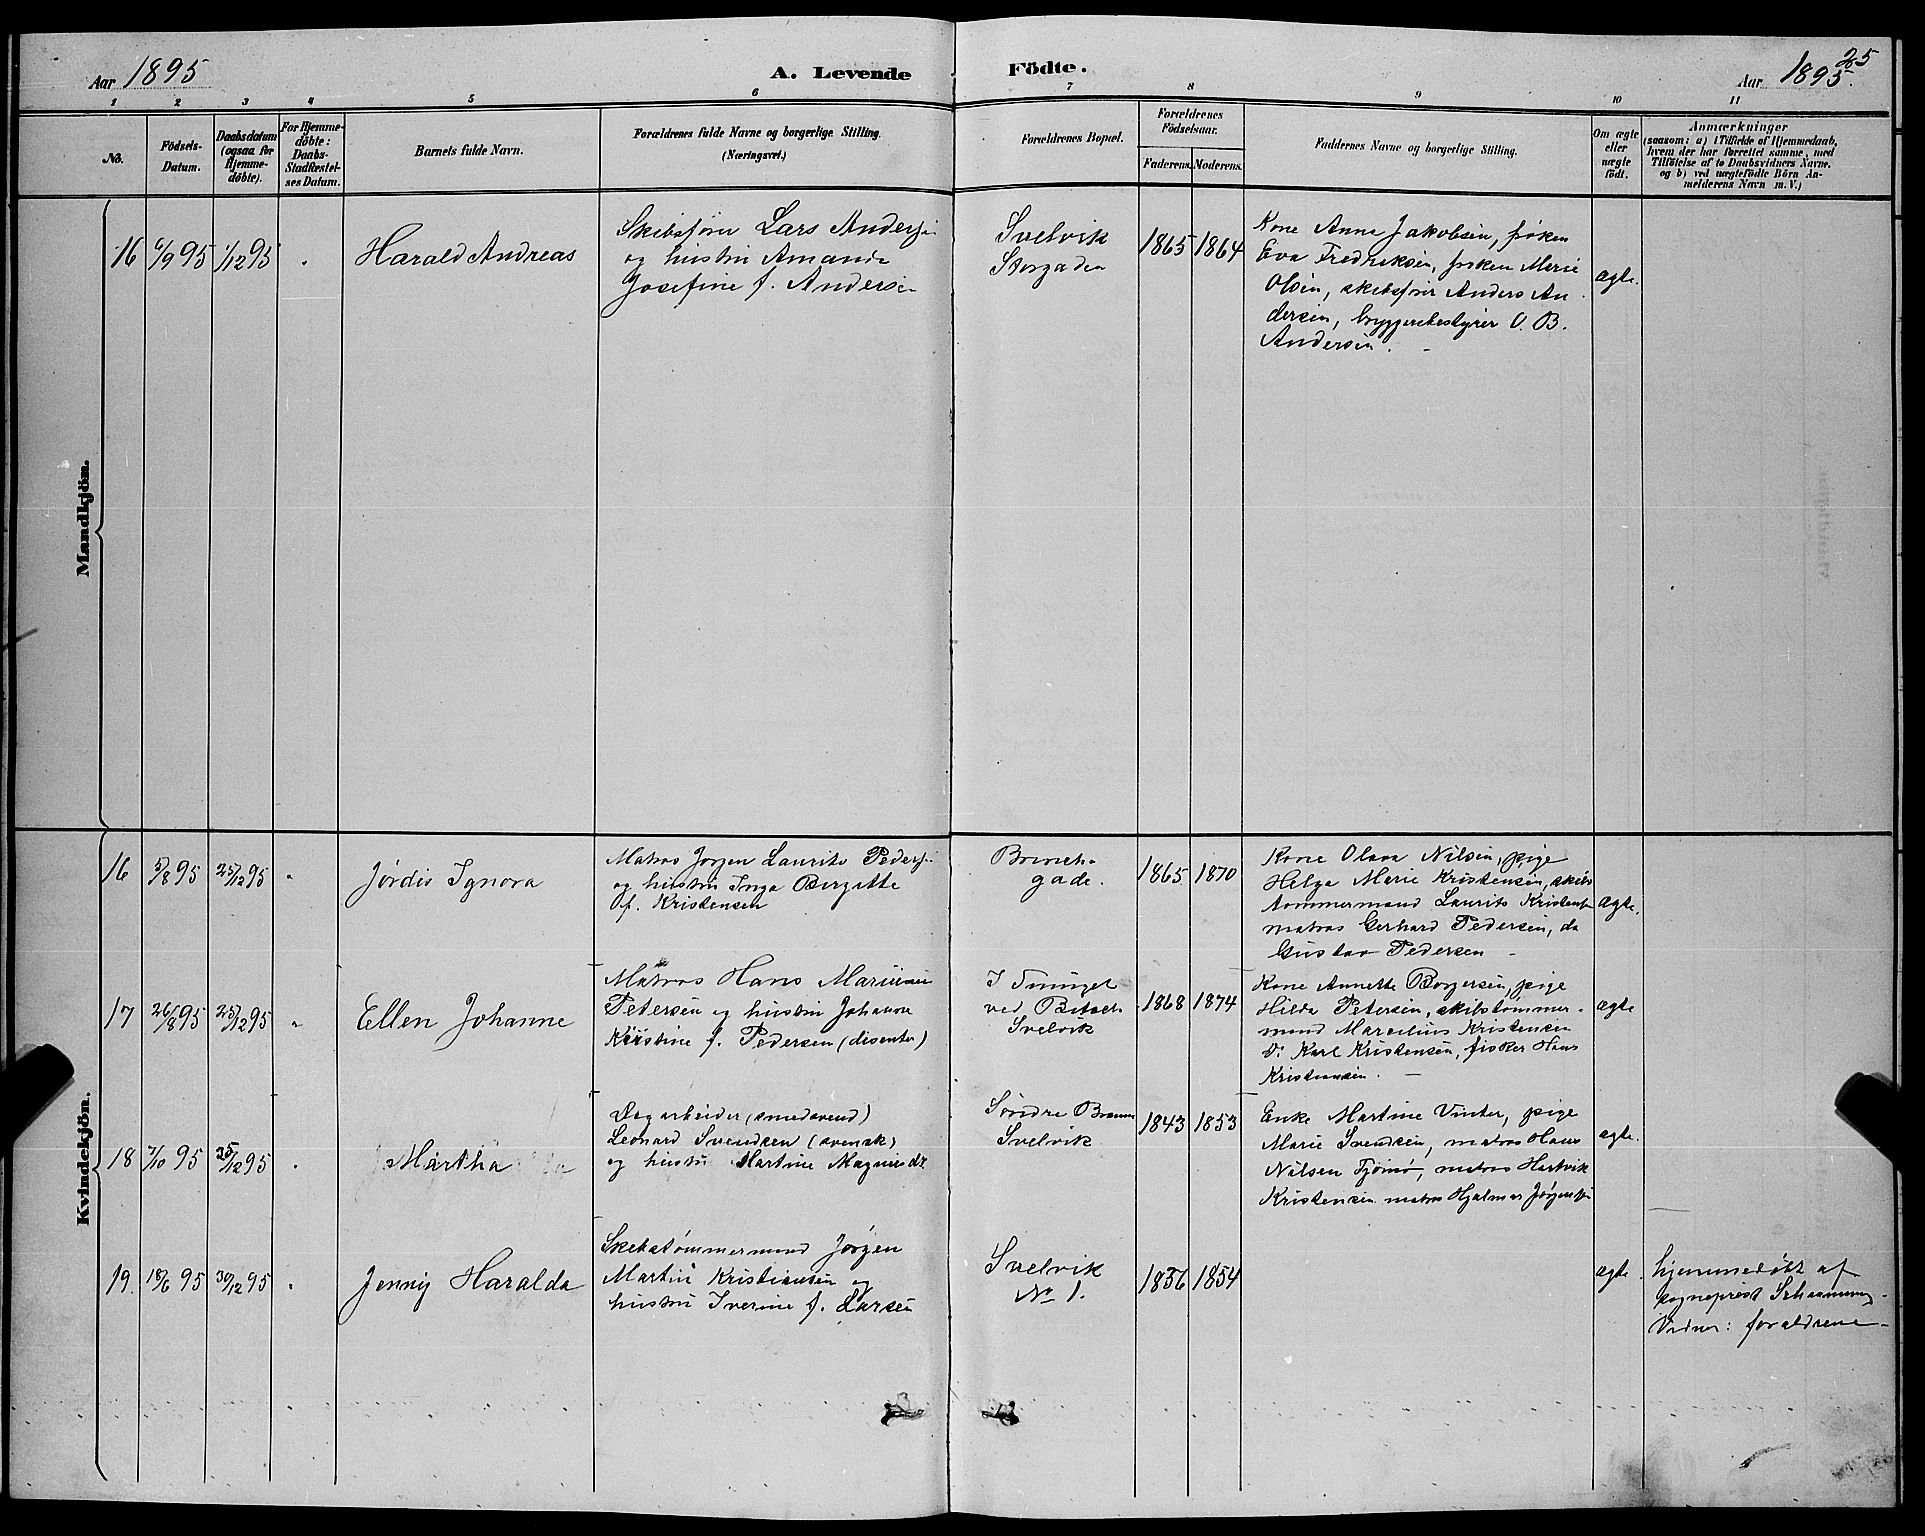 Aar 1895
A. Levende Födte.
Aar 1895.
25
1 2 3 4 5 6 7 8 9 10 11
No.
Födsels-
Datum.
Daabsdatum
(ogsaa for
Hjemme-
döbte).
For Hjemme-
döbte:
Daabs-
Stadfæstel-
ses Datum.
Barnets fulde Navn.
Forældrenes fulde Navne og borgerlige Stilling.
(Næringsvei.)
Forældrenes Bopæl.
Forældrenes
Födselsaar.
Faderens. Moderens.
Faddernes Navne og borgerlige Stilling.
Om ægte
eller
uægte
födt.
Anmærkninger
(saasom: a) i Tilfælde af Hjemmedaab,
hvem der har forrettet samme, med
Tilföielse af to Daabsvidners Navne,
og b) ved uægtefödte Börn An-
melderens Navn m. V.)
Mandkjön.
16 6/9 95 1/12 95
Harald Andreas
Skibsfører Lars Andersen
og hustru Amanda
Josefine f. Andersen
Svelvik
Storgaden
1865 1864
Kone Anna Jakobsen, frøken
Eva Fredriksen, frøken Marie
Olsen, skibsfører Anders An
dersen, bryggeribestyrer O. B.
Andersen.
ægte.
Kvindekjön.
16 5/8 95 25/12 95
Jørdis Ignora
Matros Jørgen Laurits Pedersen
og hustru Inga Birgitte
f. Kristensen
gade.
1865 1870
Kone Olava Nilsen, pige
Helga Marie Kristensen, skibs
tømmermand Laurits Kristensen
matros Gerhard Pedersen, do
Gustav Pedersen
ægte.
17 26/8 95 25/12 95
Ellen Johanne
Matros Hans
Petersen og hustru Johanne
Kristine f. Pedersen (disenter)
ved
Svelvik
1868 1874
Kone Annette Borgersen, pige
Hilda Petersen, skibstømmer-
mand Marcelius Kristensen
Karl Kristensen, fisker Hans
Kristiansen.
ægte
18 7/10 95 25/12 95
Martha
Dagarbeider (smedsvend)
Leonard Svendsen (svensk)
og hustru Martine Magnusdt
Søndre
Svelvik
1843 1853
Enke Martine Vinter, pige
Marie Svendsen, matros Hans
Nilsen Tjømø, matros Hartvik
Kristensen matros Hjalmar Jørgensen
ægte.
19. 18/6 95 30/12 95
Jenny Haralda
Skibstømmermand Jørgen
Martin Kristiansen og
hustru Iverine f. Larsen
Svelvik
No 1.
1856 1854
ægte.
hjemmedøbt af
sogneprest
Vidner: forældrene